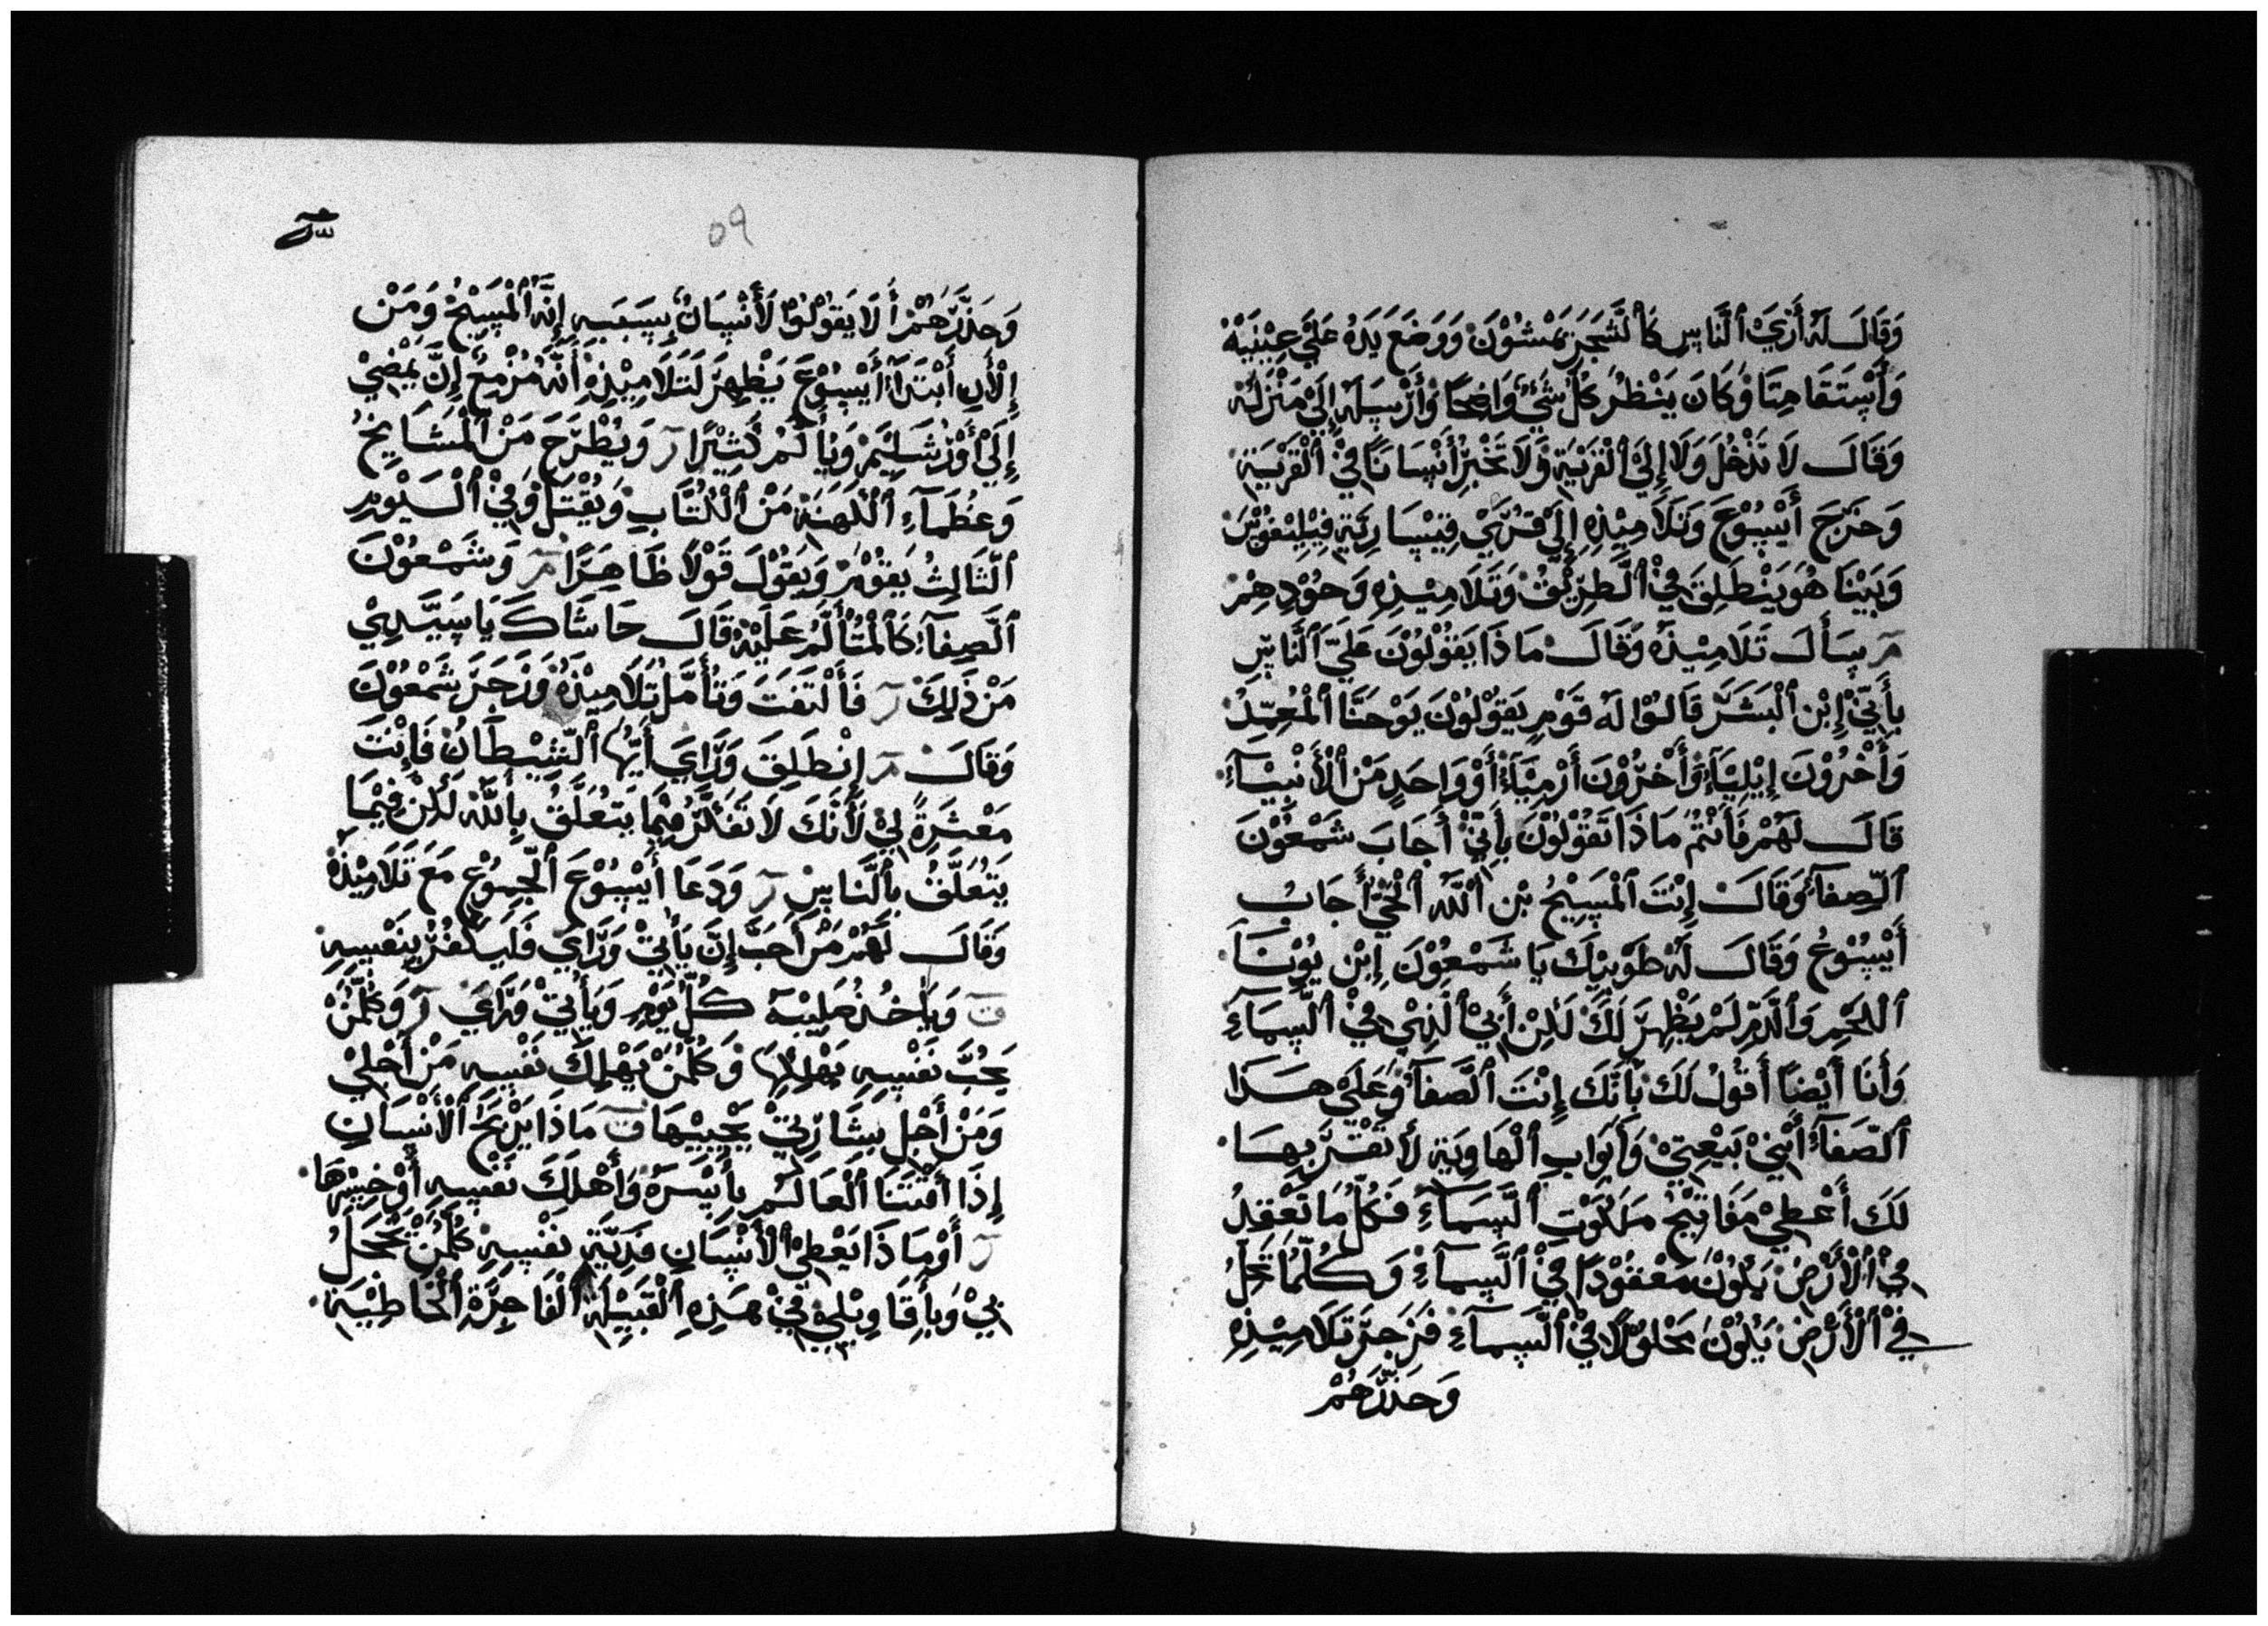 وَقَالَ لَهُ أَرَيَ ٱلنَّاسِ كَٱلشَّجَرَ يَمْشُوْنَ وَوَضَعَ يَدَهُ عَلَيَ عِيْنَيْهْ
وَأَسْتَقَامِتَا وَكَانَ يَنْظُرُ كُلَّ شَيْءٍ وَاضِحًا وَأَرْسَلَهُ إِلَيْ مَنْزَلَهْ
وَقَالَ لَا تَدْخُلَ وَلَا إِلَيْ ٱلْقَرْيَةِ وَلَا تَخْبِرُ أَنْسَانًا فِيْ ٱلْقَرْيَةِ
وَخَرَجَ أَيْسُوْعَ وَتَلَامِيْذِهِ إِلَيْ قُرَيْ قِيْسَارِيَةِ فِيْلِيْفُوْسَ
وَبَيْنَا هُوَ يَنْطَلِقَ فِيْ ٱلطَّرِيْقُ وَتَلَامِيْذِهِ وَحُوْدِهِمْ
سَأَلَ تَلَامِيْذَهُ وَقَالَ مَاذَا يَقُوْلُوْنَ عَلَيَّ ٱلنَّاسِ
بِأَنِّيْ إِبْن ٱلْبَشَرَ قَالُوْا لَهُ قَوْمٍ يَقُوْلُوْنَ يَوْحَنَّا ٱلْمُعَمِّدُ
وَأَخْرُوْنَ إِيْلِيَآءْ وَأَخْرُوْنَ أَرْمِيَآءْ أَوْ وَاحَدٍ مَنْ ٱلْأَنْبِيَآءْ
قَالَ لَهُمْ فَأَنْتُمْ مَاذَا تَقُوْلُوْنَ بِأَنِّيْ أَجَابَ شَمْعُوْنَ
ٱلصِّفَآءْ وَقَالَ إِنْتَ ٱلْمَسِيْحُ بْن ٱللَّهِ ٱلْحَيْ أَجَابُ
أَيْسُوْعُ وَقَالَ لَهُ طَوْبِيْكَ يَا شَمْعُوْنَ إِبْن يُوْنَا
ٱللَحْمِ وَٱلدَّمِ لَمْ يَظْهَرَ لَكَ لَكِنْ أَبِيْ ٱلَّذِيْ فِيْ ٱلسَّمَآءِ
وَأَنَا أَيْضًا أَقُوْلُ لَكَ بِأَنَّكَ إِنْتَ ٱلصَّفَآءْ وَعَلَيْ هَذَا
ٱلصَّفَآءْ أَبْنِيْ بَيْعِتِيْ وَأَبْوَابِ ٱلْهَاوِيَةِ لَا تَقْتَرَ بِهَا
لَكَ أَعْطِيْ مَفَاتِيْحُ مَلَكُوْتِ ٱلسَّمَآءِ فَكُلُّ مَا تَعْقِدُ
فِيْ ٱلْأَرْضِ يَكُوْنَ مَعْقُوْدًا فِيْ ٱلسَّمَآءِ وَكُلَّمَا تَحِلُّ
فِيْ ٱلْأَرْضِ يَكُوْنَ مَحْلُوْلًا فِيْ ٱلسَّمَآءِ فَزَجَرَ تَلَامِيْذِهِ
وَحَذَّرَهُمْ
٥٩
وَحَذَّرَهُمْ أَلَا يَقُوْلُوْا لَأَنْسَانٌ بِسَبَبِهِ إِنَّهُ ٱلْمَسِيْحُ وَمَنْ
إِلْأَنِ أَبْتَدَأَ أَيْسُوْعَ يَظْهِرَ لَتَلَامِيْذِهِ أَنَّهُ مُزْمِعُ إِنَّ يَمْضِيْ
إِلَيْ أَوْرُشَلِيْمَ وَيَأْلَمُ كَثِيْرًا وَيُطْرَحَ مَنْ ٱلْمَشَايِخُ
وَعُظَمَآءِ ٱلْكَهَنَةِ مَنْ ٱلْكُتَّابِ وَيُقْتَلُ وَفِيْ ٱلْيَوْمِ
ٱلثَّالِثُ يَقُوْمْ وَيَقُوْلَ قَوْلًا ظَاهِرًا وَشَمْعُوْنَ
ٱلصِّفَآءْ كَٱلْمُتْأَلَمُ عَلَيْهِ قَالَ حَاشَاكَ يَا سَيَّدِيْ
مَنْ ذَلِكَ فَأَلْتَفَتَ وَتَأَمَّلَ تَلَامِيْذَهُ وَزَجَرَ شَمْعُوْنَ
وَقَالَ إِنْطَلِقَ وَرَّايَ أَيُّهَا ٱلشِّيْطَانُ فَإِنْتَ
مَعْثَرَةً لِيْ لَأَنَّكَ لَا تَفَكَّرُ فِيْمَا يَتَعَلَّقُ بِٱللَّهِ لَكِنْ فِيْمَا
يَتَعَلَّقُ بِٱلنَّاسِ وَدَعَا أَيْسُوْعَ ٱلْجِمُوْعِ مَعَ تَلَامِيْذِهْ
وَقَالَ لَهُمْ مَنْ أَحَبَّ إِنَّ يَأَتِيْ وَرَّايَ فَلَيَكْفُرْ بِنَفْسِهِ
وَيَأخُذُ صَلِيْبَهُ كُلَّ يَوْمٍ وَيَأْتِيْ وَرَّايَ وَكُلَّمَنْ
يَحُبَّ نَفْسِهِ يَهْلِكْهَا وَكُلَّمَنْ يَهْلِكَ نَفْسِهِ مَنْ أَجْلِيْ
وَمَنْ أَجْلِ بِشَارَتِيْ يَحْيِيْهَا مَاذَا يَرْبَحَ ٱلْأَنْسَانِ
إِذَا أَقْتَنَا ٱلْعَالَمُ بِأَيْسَرَهُ وَأَهْلَكَ نَفْسِهِ أَوْ خِسِرْهَا
أَوْ مَاذَا يَعْطِيْ ٱلْأَنْسَانِ فَدِيَّةِ نَفْسِهِ كُلَّمَنْ يَخْجَلُ
بِيْ وَبِأَقَاوِيْلِيْ فِيْ هَذِهِ ٱلْقَبِيْلَةِ ٱلْفَاجِرَةِ ٱلْخَاطِيْةِ